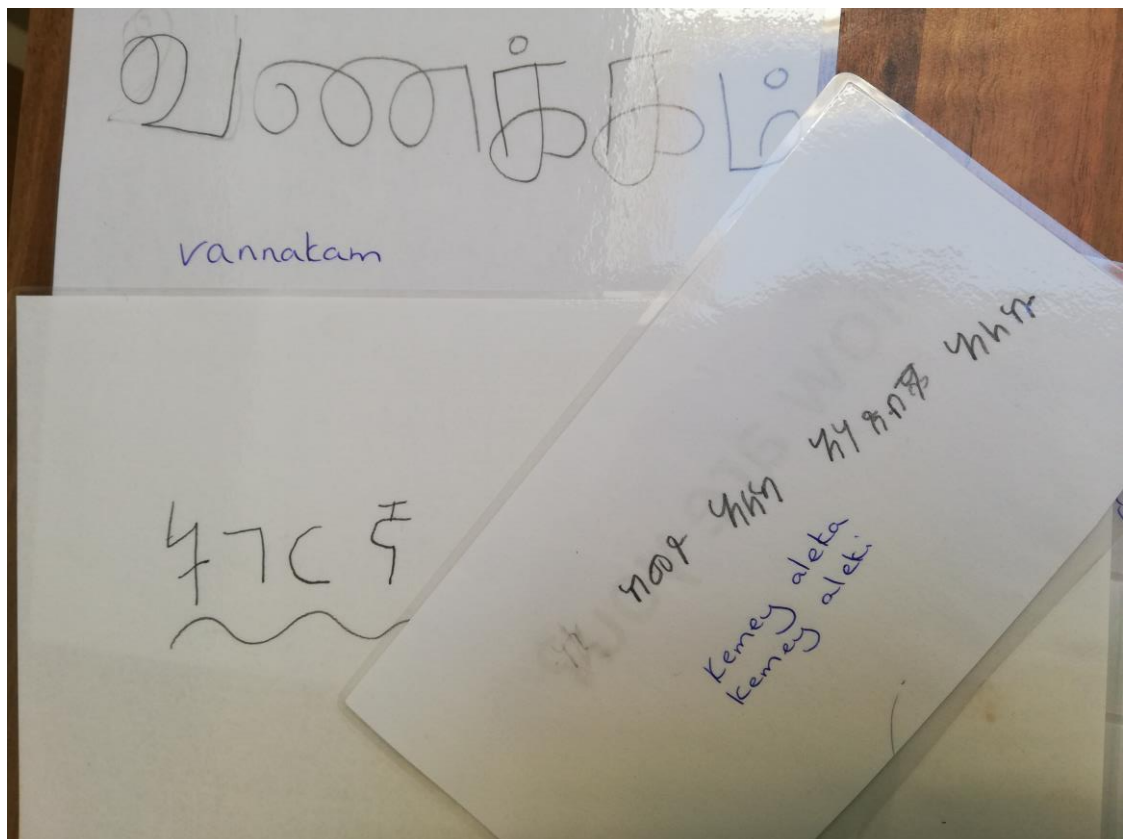 வணக்கம்
vannakam
ትግርኛ
ከመይ ኣለኻ ኣነ ጽቡቕ ኣለኹ
kemey aleka
kemey aleki